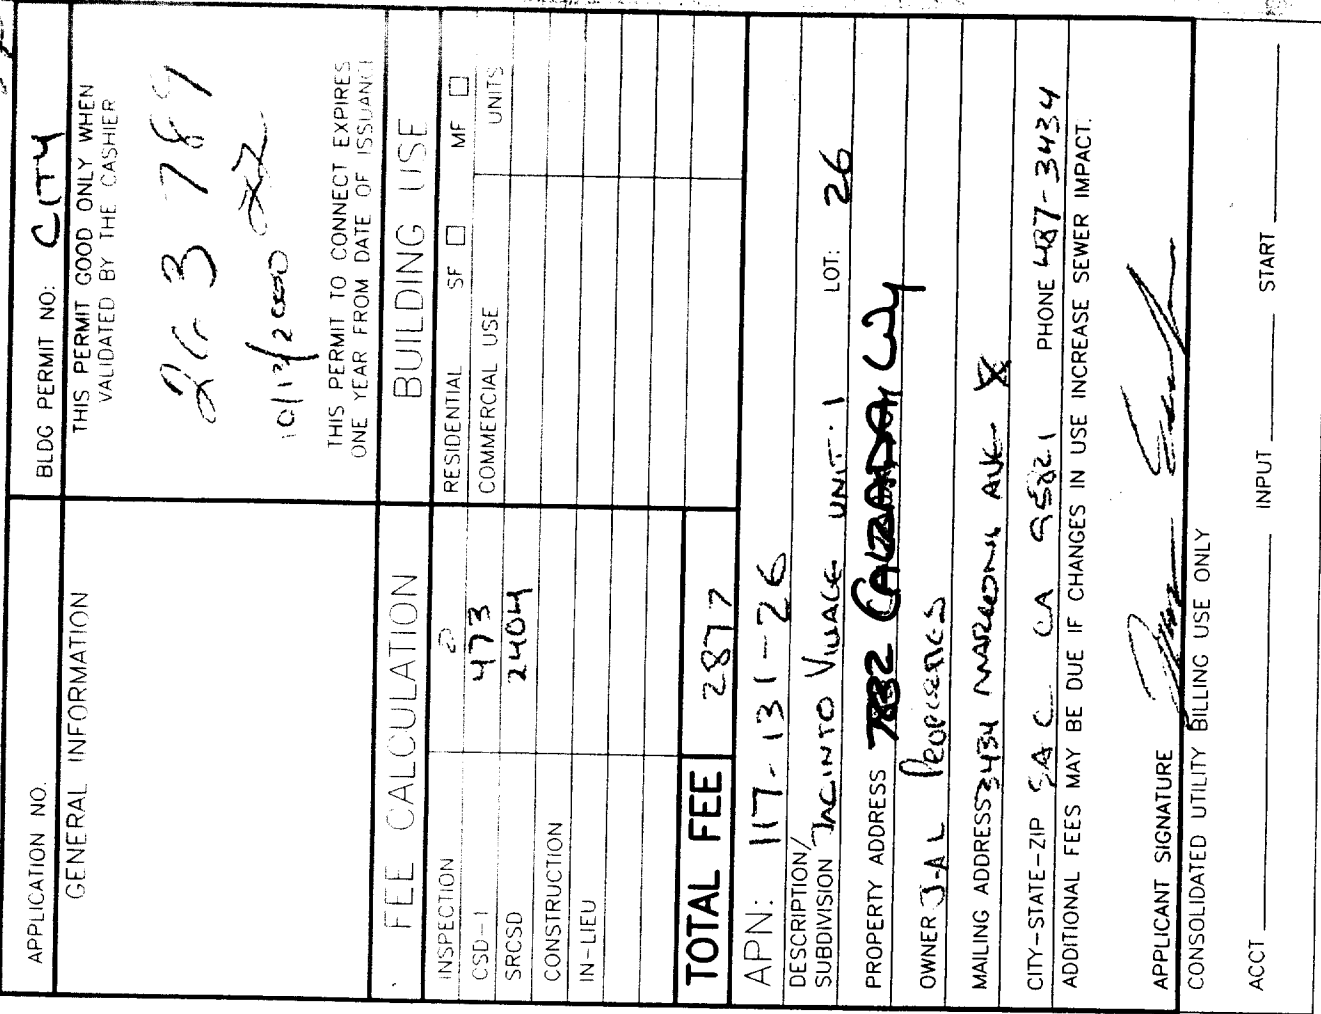 APPLICATION NO.
BLDG PERMIT NO: CITY
GENERAL INFORMATION
THIS PERMIT GOOD ONLY WHEN
VALIDATED BY THE CASHIER
10/13/2000
THIS PERMIT TO CONNECT EXPIRES
ONE YEAR FROM DATE OF ISSUANCE
FEE CALCULATION
BUILDING USE
INSPECTION
RESIDENTIAL SF ☐ MF ☐
CSD-1 473
COMMERCIAL USE UNITS
SRCSD 2404
CONSTRUCTION
IN-LIEU
TOTAL FEE 2877
APN: 117-131-26
DESCRIPTION/
SUBDIVISION JACINTO VILLAGE UNIT 1 LOT: 26
PROPERTY ADDRESS 7832 WY
OWNER J-A L
MAILING ADDRESS 3434 MARCONI AVE
CITY-STATE-ZIP SAC CA 95821 PHONE 487-3434
ADDITIONAL FEES MAY BE DUE IF CHANGES IN USE INCREASE SEWER IMPACT.
APPLICANT SIGNATURE
CONSOLIDATED UTILITY BILLING USE ONLY
ACCT INPUT START